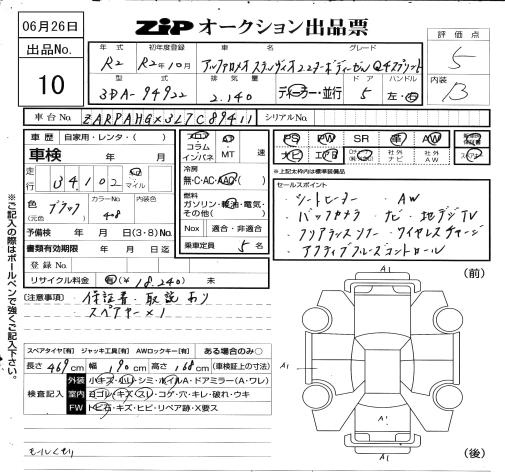 06月26日
ZIP オークション出品票
出品No.
10
年式 初年度登録 車名 グレード
R2 R2年10月 アルファロメオ ステルヴィオ 2.2ターボディーゼル Q4スプリント
型式 排気量 ドア ハンドル
3DA-94922 2.140 ディーラー・並行 5 左・右
評価点
5
内装
B
車台No. ZARPAHGX3L7C89411 シリアルNo.
車歴 自家用・レンタ( )
車検 年 月
走行 34,102 km マイル
色 (元色) ブラック カラーNo. 408 内装色
予備検 年 月 日(3・8)No.
書類有効期限 年 月 日迄
登録No.
リサイクル料金 有(¥18.240) 未
フロア コラム インパネ AT・MT 速
冷房
無・C・AC・AAC
燃料
ガソリン・軽油・電気・その他( )
Nox 適合・非適合
乗車定員 5名
PS PW SR 革 AW
ナビ エアB 社外ナビ 社外AW
※上記太枠内は標準装備
セールスポイント
・シートヒーター ・AW
・バックカメラ ・ナビ ・地デジTV
・クリアランスソナー ・ワイヤレスチャージ
・アクティブクルーズコントロール
※ご記入の際はボールペンで強くご記入下さい。
注意事項) 保証書・取説あり
スペアキー×1
スペアタイヤ[有] ジャッキ工具[有] AWロックキー[有] ある場合のみ○
長さ 469cm 幅 190cm 高さ 168cm (車検証上の寸法)
検査記入
外装 小キズ・小ハ・シミ・ホイルA・ドアミラー(A・ワレ)
室内 ヨゴレ・キズ・スレ・コゲ・穴・キレ・破れ・ウキ
FW トビ石・キズ・ヒビ・リペア跡・X要ス
モールくもり
A1
(前)
A1
A1
A1
(後)